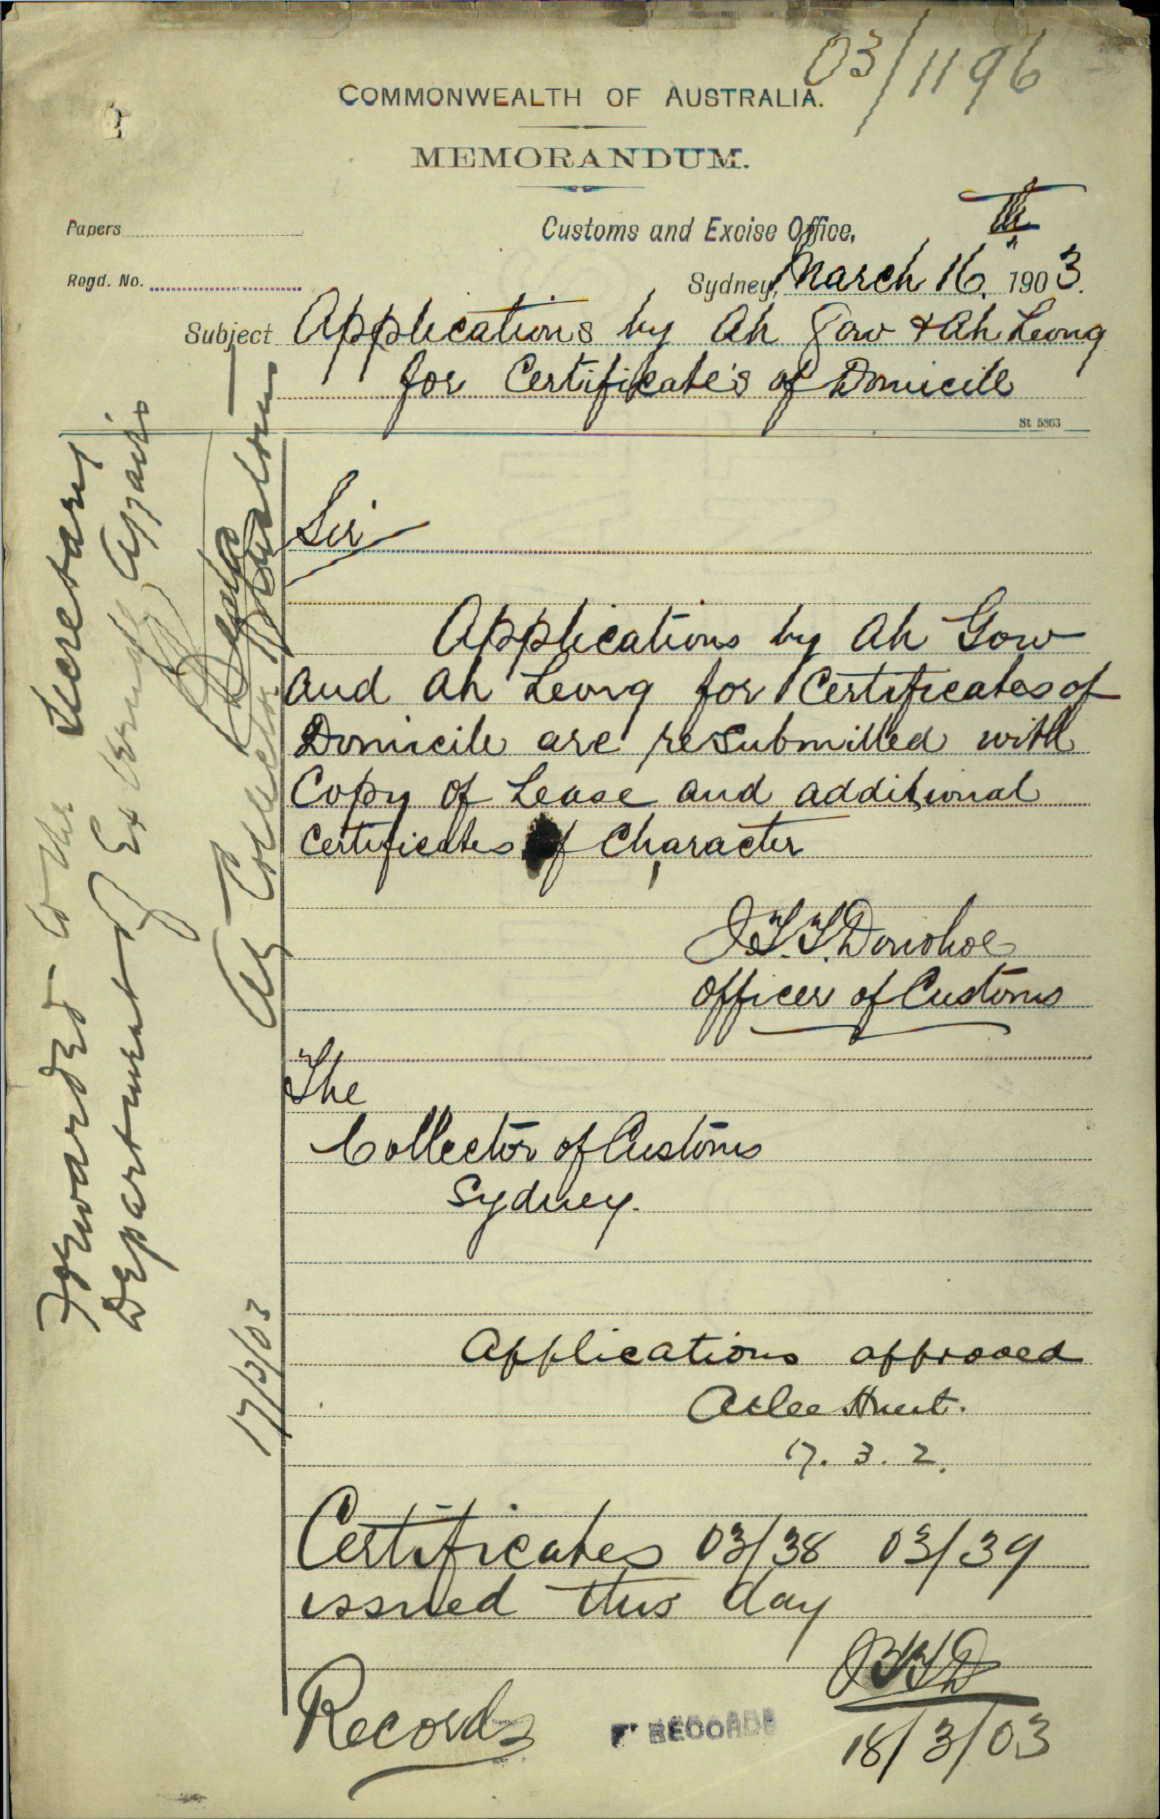 03/1196
COMMONWEALTH OF AUSTRALIA.
MEMORANDUM.
Papers
Customs and Excise Office,
Regd. No.
Sydney, March 16th 1903.
Subject Applications by Ah Gow & Ah Leong
for Certificate's of Domicile
St. 5863
Sir
Applications by Ah Gow
and Ah Leong for Certificates of
Domicile are resubmitted with
Copy of Lease and additional
Certificates of Character
J.T.T. Donohoe
Officer of Customs
The
Collector of Customs
Sydney.
Forwarded to the Secretary
Department of External Affairs
Actg Collector
17/3/03
Applications approved
Atlee Hunt.
17. 3. 2.
Certificates 03/38 03/39
issued this day
JTTD
18/3/03
Records
RECORDS